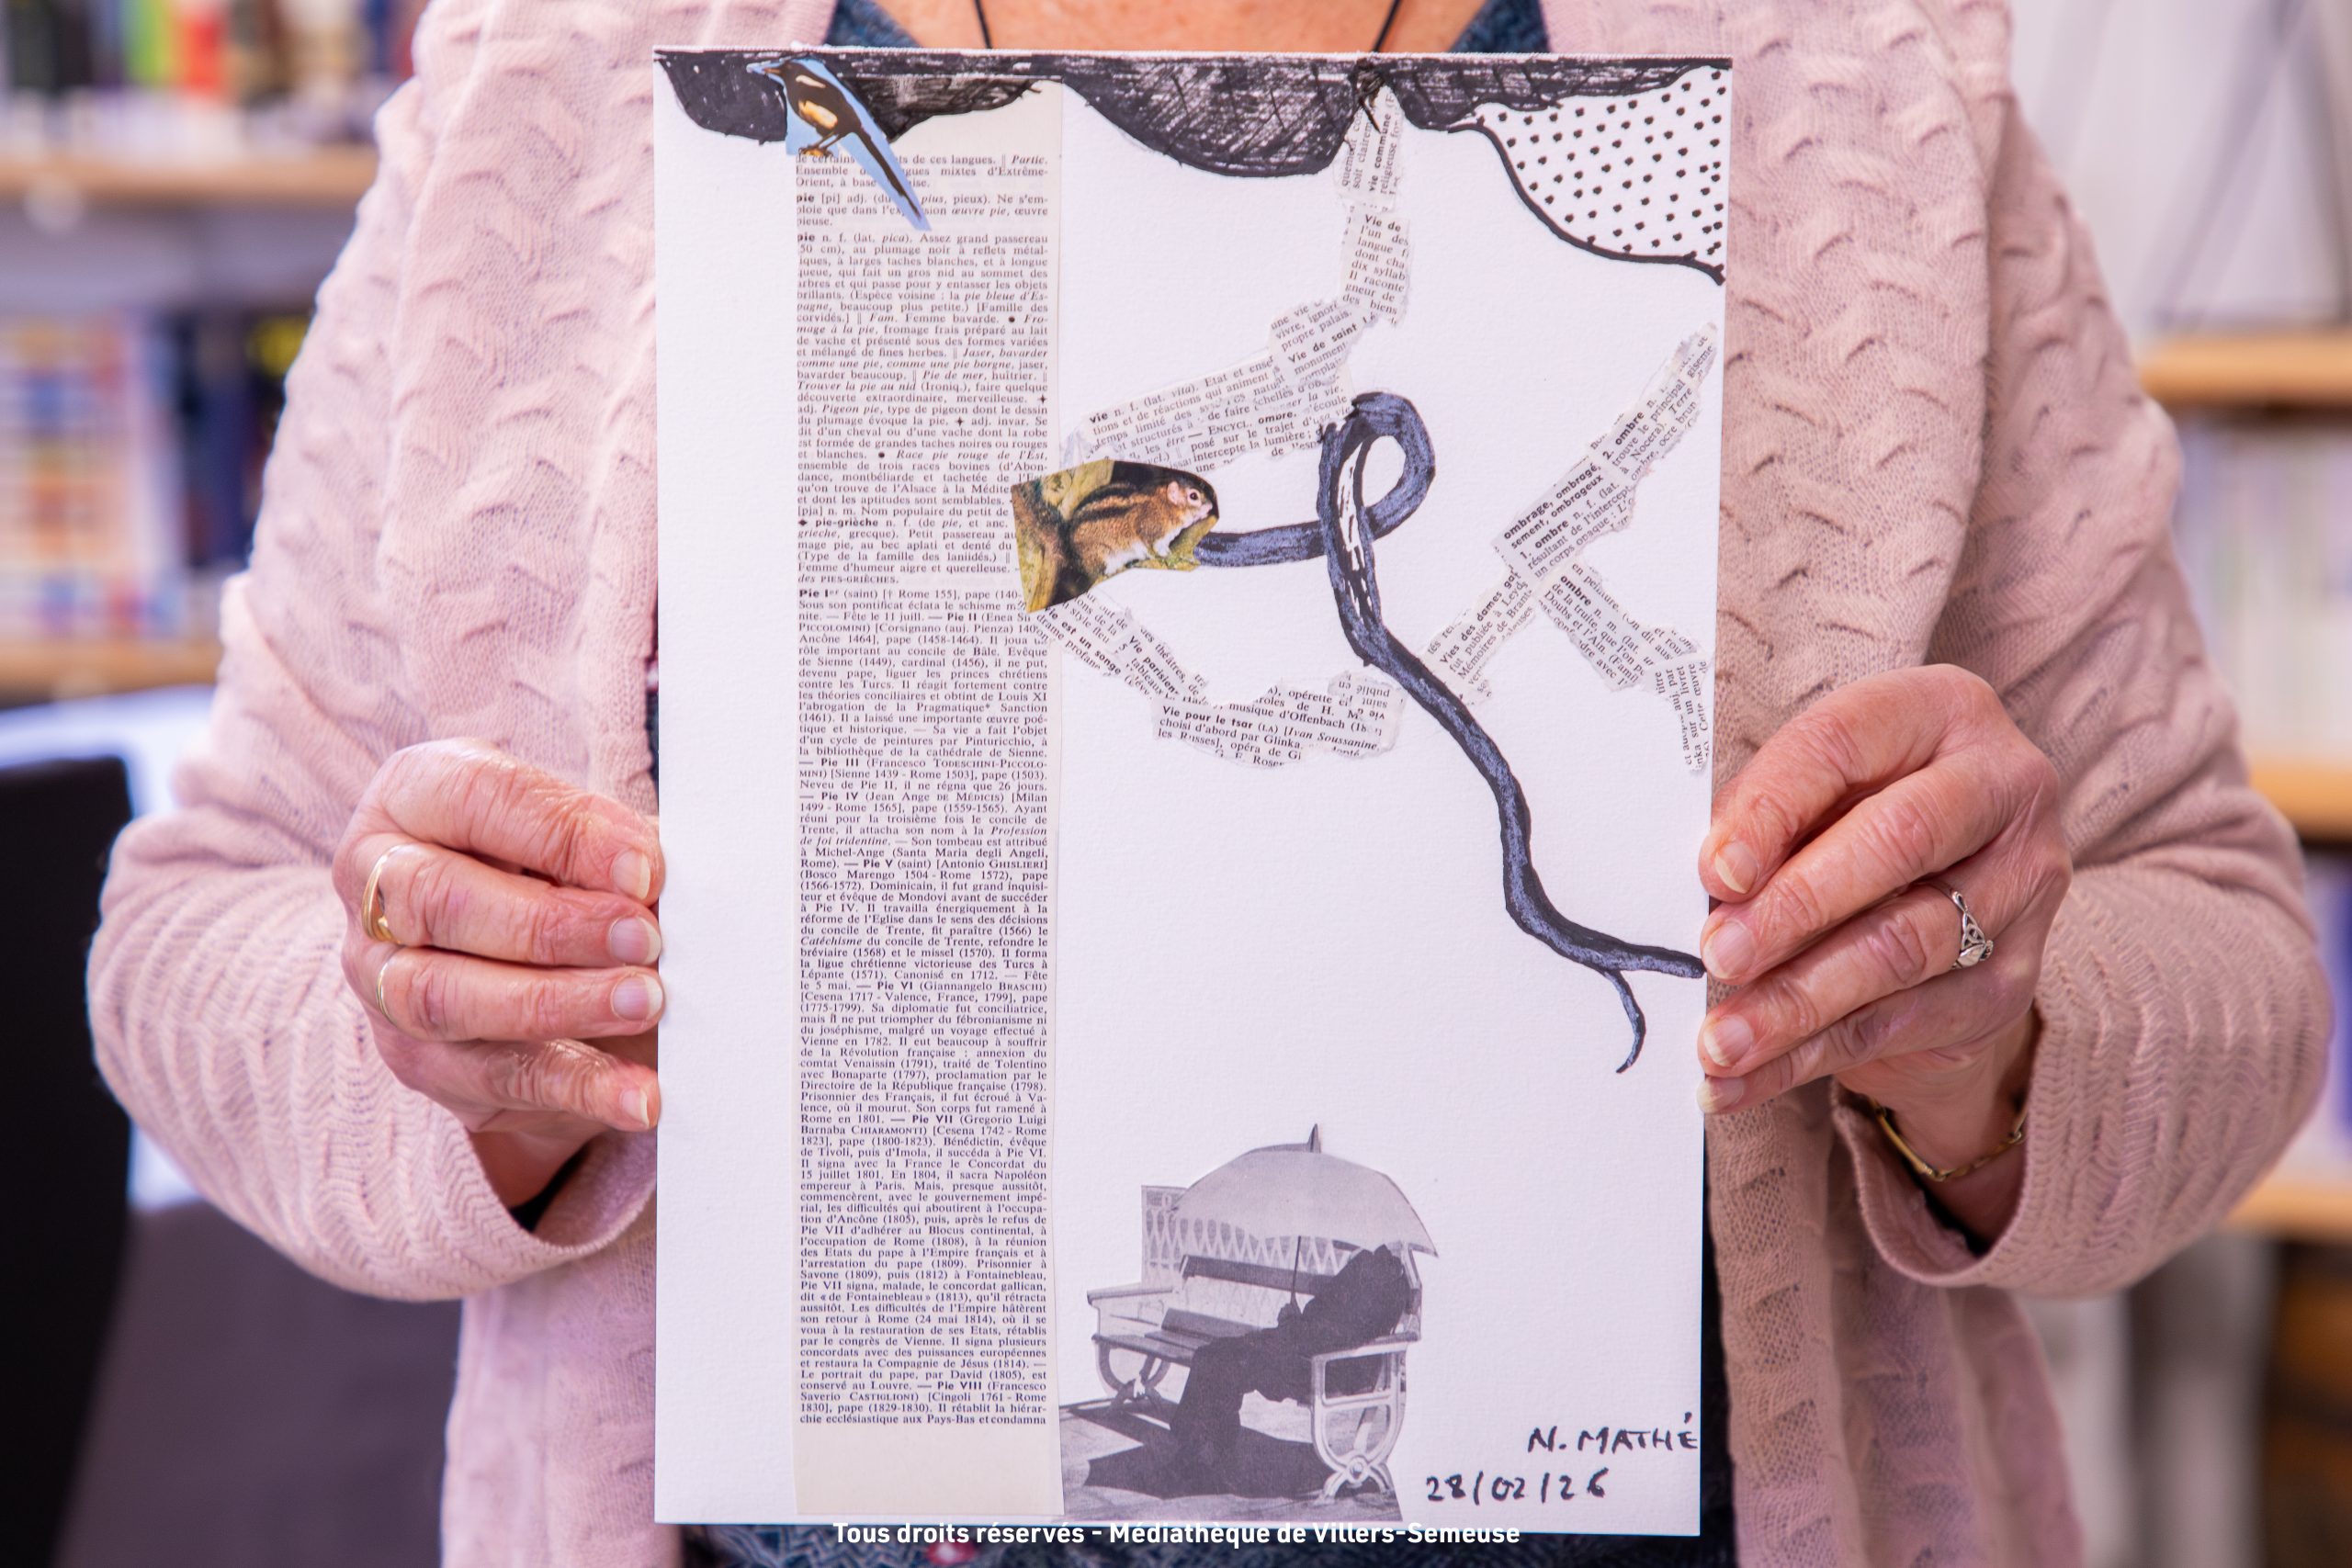 de certains ts de ces langues. || Partic.
Ensemble gues mixtes d'Extrême-
Orient, à base ise.
pie [pi] adj. (du plus, pieux). Ne s'em-
ploie que dans l'ex sion œuvre pie, œuvre
pieuse.
pie n. f. (lat. pica). Assez grand passereau
50 cm), au plumage noir à reflets métal-
iques, à larges taches blanches, et à longue
queue, qui fait un gros nid au sommet des
arbres et qui passe pour y entasser les objets
brillants. (Espèce voisine : la pie bleue d'Es-
pagne, beaucoup plus petite.) [Famille des
corvidés.] || Fam. Femme bavarde. ● Fro-
mage à la pie, fromage frais préparé au lait
de vache et présenté sous des formes variées
et mélangé de fines herbes. || Jaser, bavarder
comme une pie, comme une pie borgne, jaser,
bavarder beaucoup. || Pie de mer, huîtrier. ||
Trouver la pie au nid (Ironiq.), faire quelque
découverte extraordinaire, merveilleuse. ✦
adj. Pigeon pie, type de pigeon dont le dessin
du plumage évoque la pie. ✦ adj. invar. Se
dit d'un cheval ou d'une vache dont la robe
est formée de grandes taches noires ou rouges
et blanches. ● Race pie rouge de l'Est,
ensemble de trois races bovines (d'Abon-
dance, montbéliarde et tachetée de l'Es
qu'on trouve de l'Alsace à la Médite
et dont les aptitudes sont semblables.
[pja] n. m. Nom populaire du petit de
✦ pie-grièche n. f. (de pie, et anc.
grieche, grecque). Petit passereau au
mage pie, au bec aplati et denté du
(Type de la famille des laniidés.) ||
Femme d'humeur aigre et querelleuse. -
des PIES-GRIÈCHES.
Pie Ier (saint) [† Rome 155], pape (140-
Sous son pontificat éclata le schisme m
nite. — Fête le 11 juill. — Pie II (Enea Sil
PICCOLOMINI) [Corsignano (auj. Pienza) 140
Ancône 1464], pape (1458-1464). Il joua
rôle important au concile de Bâle. Evêque
de Sienne (1449), cardinal (1456), il ne put,
devenu pape, liguer les princes chrétiens
contre les Turcs. Il réagit fortement contre
les théories conciliaires et obtint de Louis XI
l'abrogation de la Pragmatique* Sanction
(1461). Il a laissé une importante œuvre poé-
tique et historique. — Sa vie a fait l'objet
d'un cycle de peintures par Pinturicchio, à
la bibliothèque de la cathédrale de Sienne.
— Pie III (Francesco TODESCHINI-PICCOLO-
MINI) [Sienne 1439 - Rome 1503], pape (1503).
Neveu de Pie II, il ne régna que 26 jours.
— Pie IV (Jean Ange DE MÉDICIS) [Milan
1499 - Rome 1565], pape (1559-1565). Ayant
réuni pour la troisième fois le concile de
Trente, il attacha son nom à la Profession
de foi tridentine. — Son tombeau est attribué
à Michel-Ange (Santa Maria degli Angeli,
Rome). — Pie V (saint) [Antonio GHISLIERI]
(Bosco Marengo 1504 - Rome 1572), pape
(1566-1572). Dominicain, il fut grand inquisi-
teur et évêque de Mondovi avant de succéder
à Pie IV. Il travailla énergiquement à la
réforme de l'Eglise dans le sens des décisions
du concile de Trente, fit paraître (1566) le
Catéchisme du concile de Trente, refondre le
bréviaire (1568) et le missel (1570). Il forma
la ligue chrétienne victorieuse des Turcs à
Lépante (1571). Canonisé en 1712. — Fête
le 5 mai. — Pie VI (Giannangelo BRASCHI)
[Cesena 1717 - Valence, France, 1799], pape
(1775-1799). Sa diplomatie fut conciliatrice,
mais il ne put triompher du fébronianisme ni
du joséphisme, malgré un voyage effectué à
Vienne en 1782. Il eut beaucoup à souffrir
de la Révolution française : annexion du
comtat Venaissin (1791), traité de Tolentino
avec Bonaparte (1797), proclamation par le
Directoire de la République française (1798).
Prisonnier des Français, il fut écroué à Va-
lence, où il mourut. Son corps fut ramené à
Rome en 1801. — Pie VII (Gregorio Luigi
Barnaba CHIARAMONTI) [Cesena 1742 - Rome
1823], pape (1800-1823). Bénédictin, évêque
de Tivoli, puis d'Imola, il succéda à Pie VI.
Il signa avec la France le Concordat du
15 juillet 1801. En 1804, il sacra Napoléon
empereur à Paris. Mais, presque aussitôt,
commencèrent, avec le gouvernement impé-
rial, les difficultés qui aboutirent à l'occupa-
tion d'Ancône (1805), puis, après le refus de
Pie VII d'adhérer au Blocus continental, à
l'occupation de Rome (1808), à la réunion
des Etats du pape à l'Empire français et à
l'arrestation du pape (1809). Prisonnier à
Savone (1809), puis (1812) à Fontainebleau,
Pie VII signa, malade, le concordat gallican,
dit « de Fontainebleau » (1813), qu'il rétracta
aussitôt. Les difficultés de l'Empire hâtèrent
son retour à Rome (24 mai 1814), où il se
voua à la restauration de ses Etats, rétablis
par le congrès de Vienne. Il signa plusieurs
concordats avec des puissances européennes
et restaura la Compagnie de Jésus (1814). —
Le portrait du pape, par David (1805), est
conservé au Louvre. — Pie VIII (Francesco
Saverio CASTIGLIONI) [Cingoli 1761 - Rome
1830], pape (1829-1830). Il rétablit la hiérar-
chie ecclésiastique aux Pays-Bas et condamna
vie commune
religieuse
Vie de
l'un des
langue
dont cha
dix syllab
Il raconte
gneur de
des biens
une vie
vivre, ignor
propre palais.
Vie de saint
monument
vie n. f. (lat. vita). Etat et ense
tions et de réactions qui animent
temps limité des
structurés à de faire
— ENCYCL. ombre.
posé sur le trajet d'u
intercepte la lumière ;
une de
ombrage, ombragé,
sement, ombrageux
1. ombre n. f. (lat.
résultant de l'intercept
un corps opaque :
2. ombre n.
trouve le principal giseme
à Nocera). Terre
ombre, ocre brun
Vies des dames gal
fut publiée à Leyd
Mémoires de Brant
en peinture.
ombre n. m. (lat.
de la truite, que l'on p
Doubs et l'Ain. (Famil
Vie est un songe
drame profane
Vie parisien
tableaux
), opérette
roles de H. M
musique d'Offenbach
Vie pour le tsar (LA) [Ivan Soussanine,
choisi d'abord par Glinka
les Russes], opéra de Gl
G. F. Rosen
N. MATHÉ
28/02/26
Tous droits réservés - Médiathèque de Villers-Semeuse